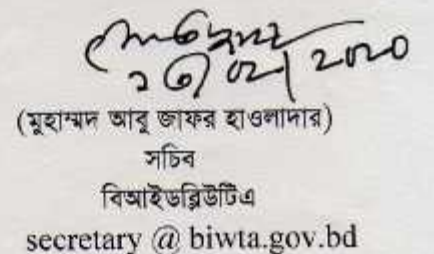 (মুহাম্মদ আবু জাফর হাওলাদার)
সচিব
বিআইডব্লিউটিএ
secretary @ biwta.gov.bd